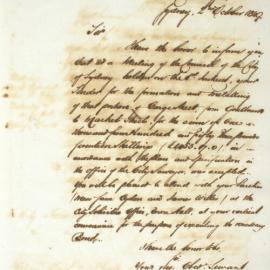 Sydney, 2nd October 184
Sir
I have the honor to inform you
that at a Meeting of the Council of the City
of Sydney holden on the 1st instant, your
Tender for the formation and
of that portion of George Street, from
to Market Street, for the sum of One
thousand four hundred and fifty three Pounds
seventeen Shillings (£1453.17.0) in
accordance with the plan and specification in
the office of the City Surveyor, was accepted.
You will be pleased to attend with your Sureties
at the
City Solicitors Office, at your earliest
convenience for the purpose of executing the necessary
Bond.
I have the honor to be
Your Obt Servant